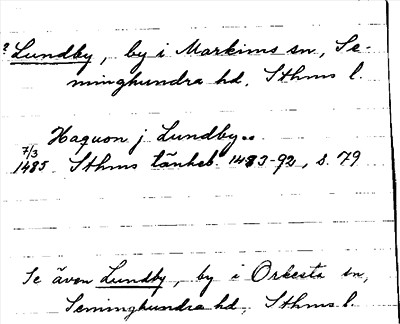 ? Lundby, by i Markims sn, Se-
minghundra hd, Sthms l.
Haquon j Lundby..
7/3
1485 Sthms tänkeb. 1483-92, s. 79
Se även Lundby, by i Orkesta sn,
Seminghundra hd, Sthms l.